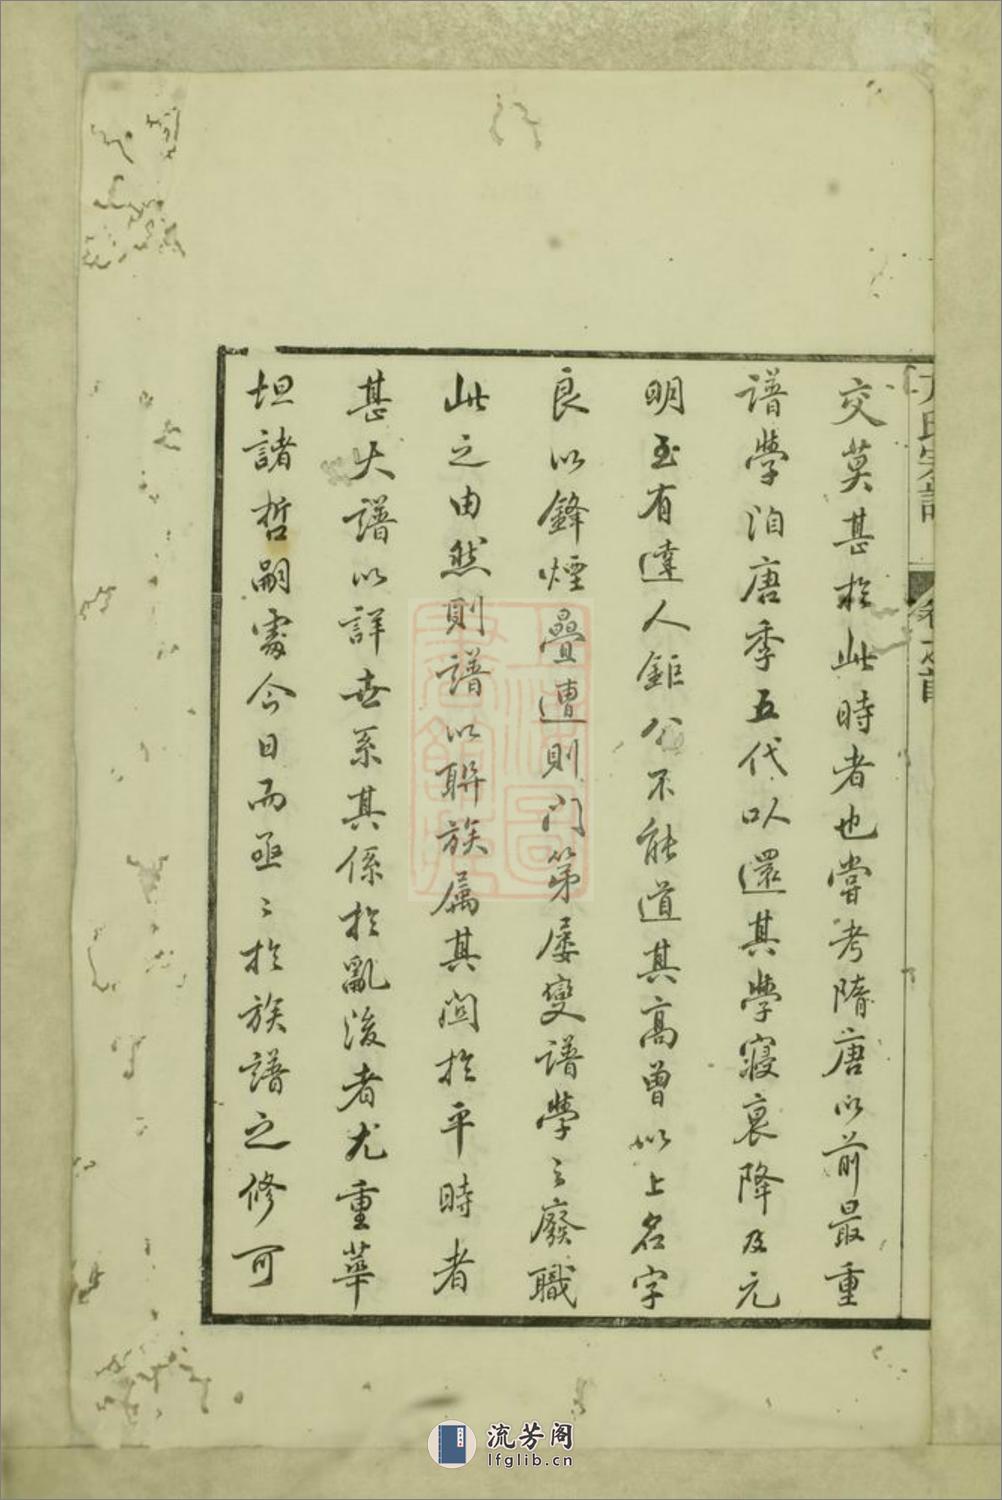 交莫甚於此時者也嘗考隋唐以前最重
譜學洎唐季五代以還其學寖衰降及元
明至有達人鉅公不能道其高曾以上名字
良以鋒煙疊遭則門第屢變譜學之廢職
此之由然則譜以聯族属其関於平時者
甚大譜以詳世系其係於亂後者尤重華
坦諸哲嗣處今日而亟〻於族譜之修可
氏宗譜
卷之首
上海圖書館藏
流芳阁
lfglib.cn